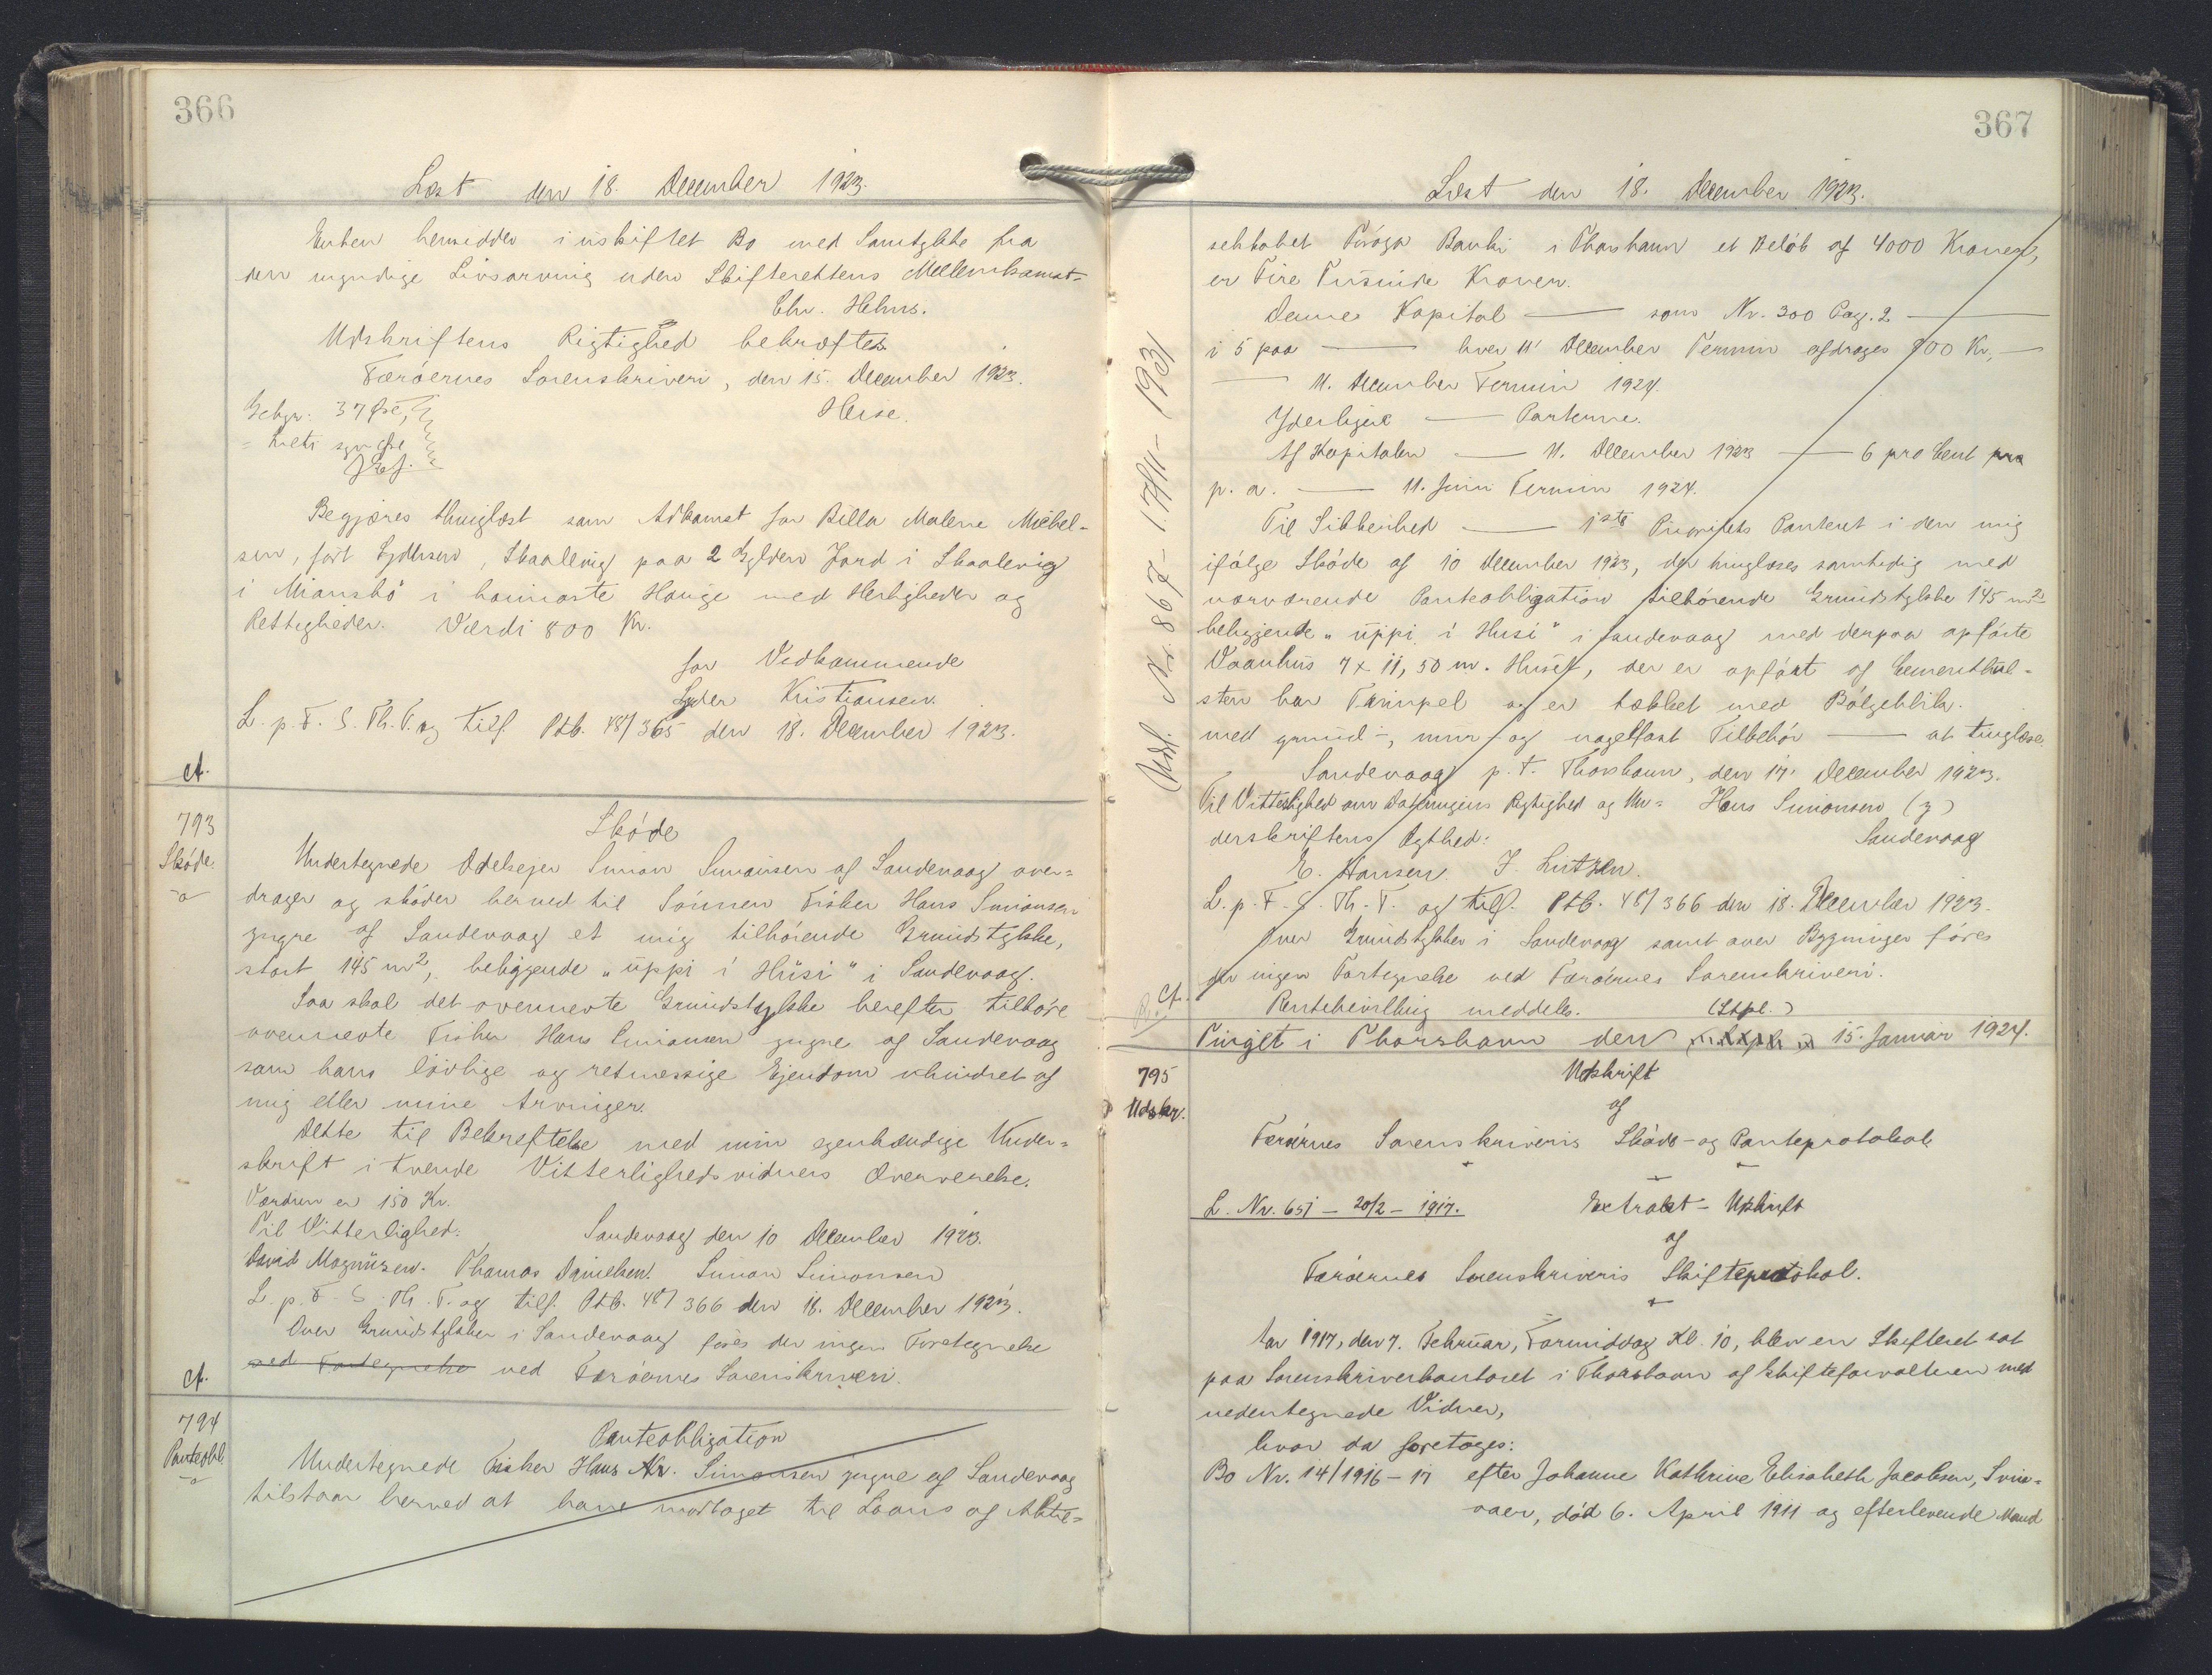 366
Læst den 18. December 1923.
Enken hensidder i uskiftet Bo med Samtykke fra
den myndige Livsarving uden Skifterettens Mellemkomst.
Chr. Helms.
Udskriftens Rigtighed bekræftes
Færöernes Sorenskriveri, den 15. December 1923.
Gebyr. 37 Øre, Heise.
Begjæres thinglæst som Adkomst for Billa Malene Michel-
sen, født Lydersen, Skaalevig paa 2 Gylden Jord i Skaalevig
i Miansbö i heimaste Hauge med Herligheder og
Rettigheder. Værdi 800 Kr.
for Vedkommende
Lyder Kristiansen.
L. p. F. S. Th. T. og tilf. Ptb. 48/365 den 18. December 1923.
ct.
793
Sköde.
Sköde
Undertegnede Odelsejer Simon Simonsen af Sandevaag over=
drager og sköder herved til Sönnen Fisker Hans Simonsen
yngre af Sandevaag et mig tilhörende Grundstykke,
stort 145 m², beliggende „uppi i Húsi" i Sandevaag.
Saa skal det ovennevte Grundstykke herefter tilhöre
ovennevte Fisker Hans Simonsen yngre af Sandevaag
som hans lövlige og retmessige Ejendom uhindret af
mig eller mine Arvinger.
Dette til Bekreftelse med min egenhændige Under=
skrift i tvende Vitterlighedsvidners Oververelse.
Værdien er 150 Kr.
Til Vitterlighed: Sandevaag den 10 December 1923.
David Magnusen. Thomas Danielsen. Simon Simonsen
L. p. F. S. Th. T. og tilf. Ptb. 48/366 den 18. December 1923.
Over Grundstykker i Sandevaag föres der ingen Fortegnelse
ved Fortegnelse ved Færöernes Sorenskriveri.
ct.
794
Panteobl.
Panteobligation
Undertegnede Fisker Hans Kr. Simonsen yngre af Sandevaag
tilstaar herved at have modtaget til Laans af Aktie=
367
Læst den 18. December 1923.
selskabet Föroya Banki i Thorshavn et Beløb af 4000 Kroner,
er Fire Tusinde Kroner.
Denne Kapital — som Nr. 300 Pag. 2 —
i 5 paa — hver 11' December Termin afdrages 800 Kr. —
— 11. December Termin 1924.
Yderligere — Parterne.
Af Kapitalen — 11. December 1923 — 6 pro Cent pro
p. a. — 11. Juni Termin 1924.
Til Sikkerhed — 1ste Prioritets Panteret i den mig
ifölge Sköde af 10 December 1923, der tinglæses samtidig med
nærværende Panteobligation tilhörende Grundstykke 145 m²
beliggende „uppi i Húsi" i Sandevaag med derpaa opförte
Vaanhus 7 x 11,50 m. Huset, der er opfört af Cementhul-
sten har Trinnpel og er tækket med Bölgeblik.
med grund-, mur- og nagelfast Tilbehör — at tinglæse.
Sandevaag p. t. Thorshavn, den 17' December 1923.
Til Vitterlighed om Dateringens Rigtighed og Un= Hans Simonsen (y)
derskriftens Ægthed: Sandevaag
E. Hansen. J. Lützen.
L. p. F. S. Th. T. og tilf. Ptb. 48/366 den 18. December 1923.
Over Grundstykker i Sandevaag samt over Bygninger föres
der ingen Fortegnelse ved Færöernes Sorenskriveri.
ct. Rentebevilling meddeles. (Stpl.)
Udsl. Nr. 867 - 17/11 - 1931
Tinget i Thorshavn den 15. Januar 1924.
795
Udskr.
Udskrift
af
Færöernes Sorenskriveris Sköde- og Panteprotokol
L. Nr. 651 - 20/2 - 1917. Extrakt - Udskrift
af
Færöernes Sorenskriveris Skifteprotokol.
Aar 1917, den 7. Februar, Formiddag Kl. 10, blev en Skifteret sat
paa Sorenskriverkontoret i Thorshavn af Skifteforvalteren med
nedentegnede Vidner,
hvor da foretoges:
Bo Nr. 14/1916-17 efter Johanne Kathrine Elisabeth Jacobsen, Svin-
oaer, död 6. April 1911 og efterlevende Mand